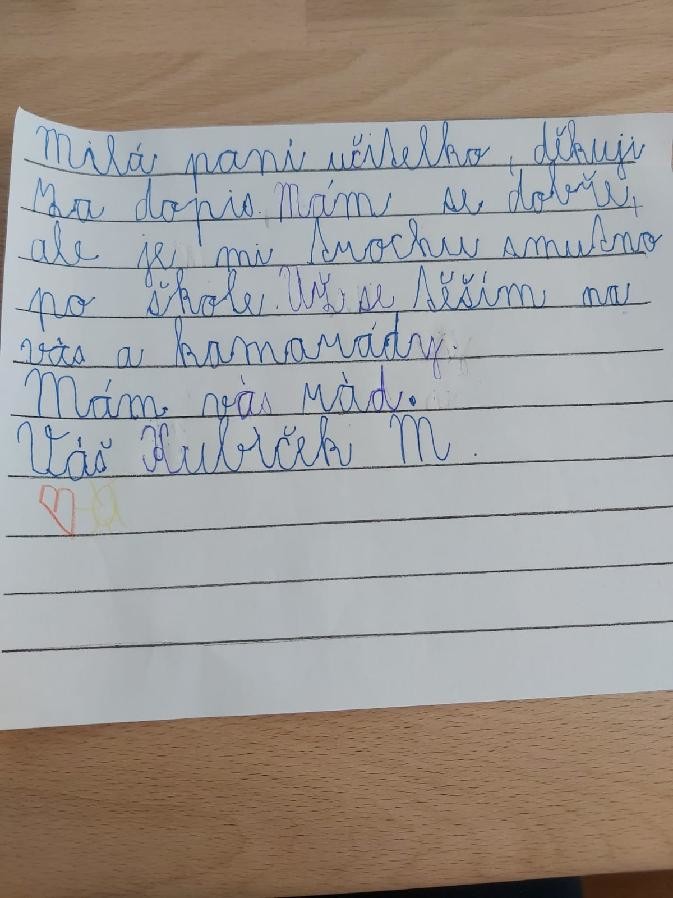 Milá paní učitelko, děkuji
za dopis. Mám se dobře,
ale je mi trochu smutno
po škole. Už se těším na
vás a kamarády.
Mám vás rád.
Váš Kubíček M.